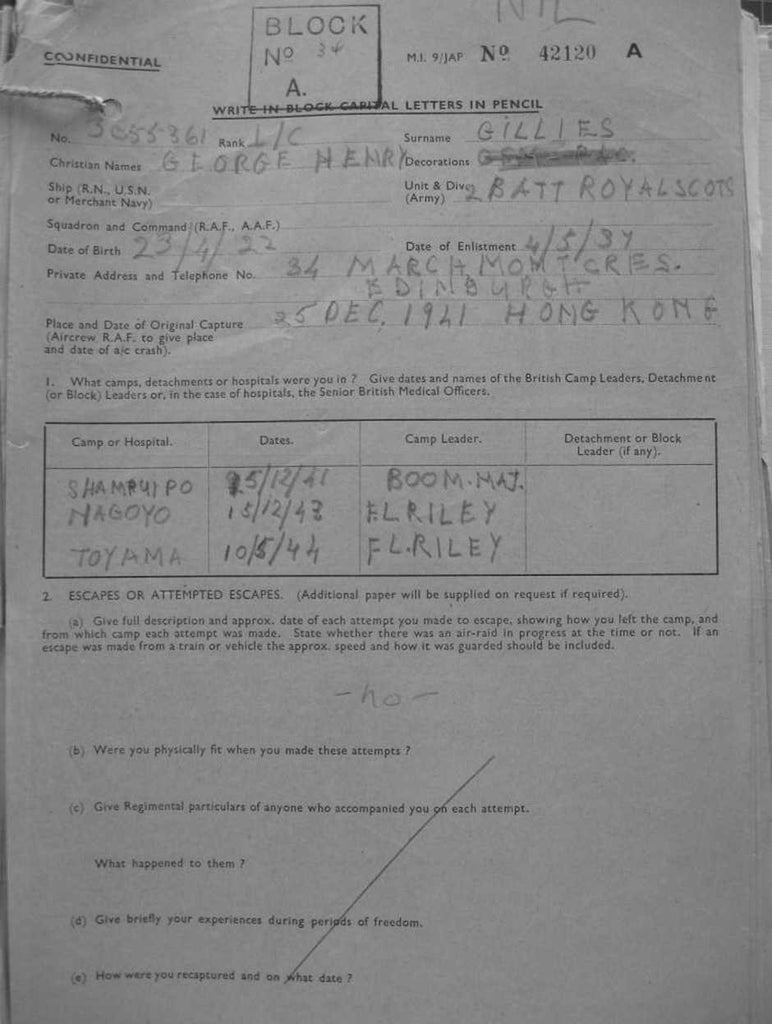 NIL
BLOCK
Nº 34
A.
CONFIDENTIAL
M.I. 9/JAP Nº 42120 A
WRITE IN BLOCK CAPITAL LETTERS IN PENCIL
No. 3055361 Rank L/C Surname GILLIES
Christian Names GEORGE HENRY Decorations
Ship (R.N., U.S.N. or Merchant Navy) Unit & Div. (Army) 2 BATT ROYAL SCOTS
Squadron and Command (R.A.F., A.A.F.)
Date of Birth 23/4/22 Date of Enlistment 4/5/37
Private Address and Telephone No. 34 MARCHMOMT CRES.
EDINBURGH
Place and Date of Original Capture 25 DEC, 1941 HONG KONG
(Aircrew R.A.F. to give place
and date of a/c crash).
1. What camps, detachments or hospitals were you in ? Give dates and names of the British Camp Leaders, Detachment
(or Block) Leaders or, in the case of hospitals, the Senior British Medical Officers.
Camp or Hospital. Dates. Camp Leader. Detachment or Block Leader (if any).
SHAMPUIPO 25/12/41 BOOM. MAJ.
NAGOYO 15/12/43 F.L. RILEY
TOYAMA 10/5/44 F.L. RILEY
2. ESCAPES OR ATTEMPTED ESCAPES. (Additional paper will be supplied on request if required).
(a) Give full description and approx. date of each attempt you made to escape, showing how you left the camp, and
from which camp each attempt was made. State whether there was an air-raid in progress at the time or not. If an
escape was made from a train or vehicle the approx. speed and how it was guarded should be included.
- no -
(b) Were you physically fit when you made these attempts ?
(c) Give Regimental particulars of anyone who accompanied you on each attempt.
What happened to them ?
(d) Give briefly your experiences during periods of freedom.
(e) How were you recaptured and on what date ?